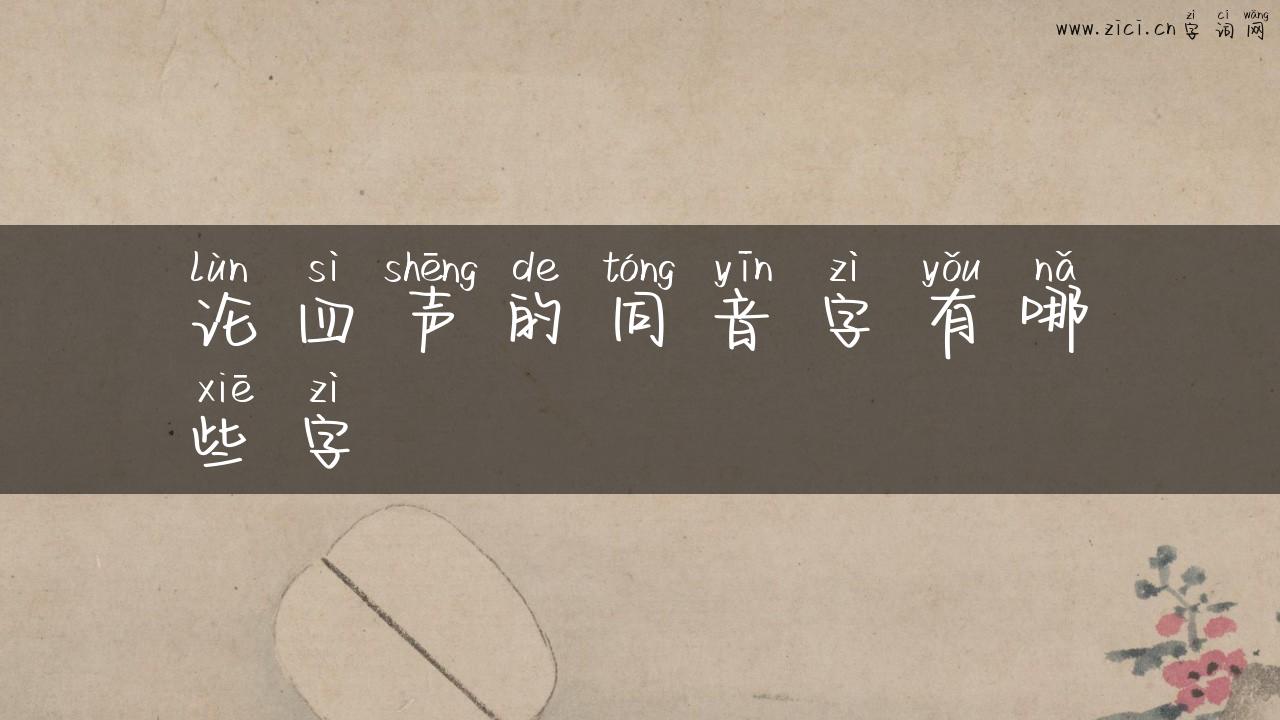 zì cí wǎng
www.zici.cn 字词网
lùn sì shēng de tóng yīn zì yǒu nǎ
论四声的同音字有哪
xiē zì
些字